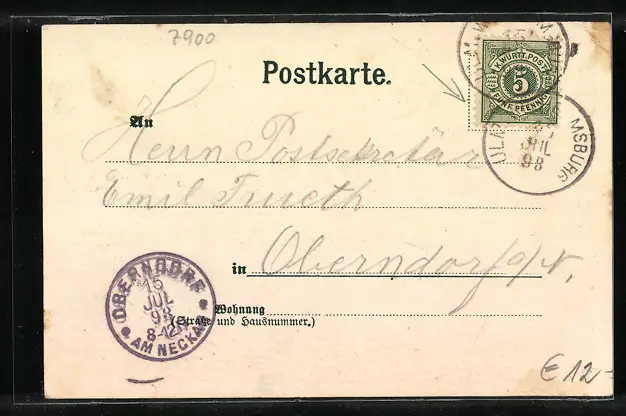 7900
Postkarte.
K. WÜRTT. POST
5
FÜNF PFENNIG
ULM
MSBURG
JUL
98
An
Herrn Postsekretär
Emil
in Oberndorf a/N.
Wohnung
(Straße und Hausnummer.)
OBERNDORF
15
JUL
98
8-12
AM NECKAR
€ 12-